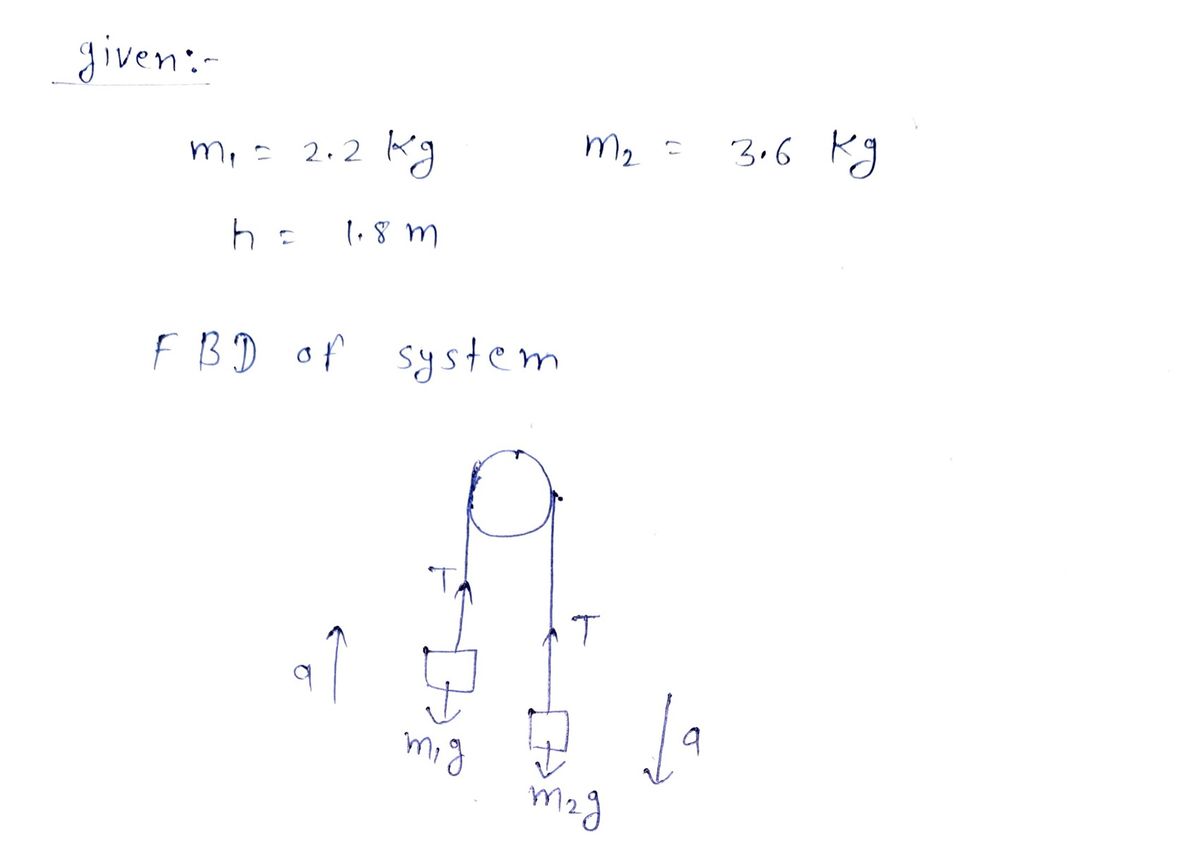 given:-
m₁ = 2.2 Kg m₂ = 3.6 Kg
h = 1.8 m
FBD of system
T
T
a
a
m₁g
m₂g